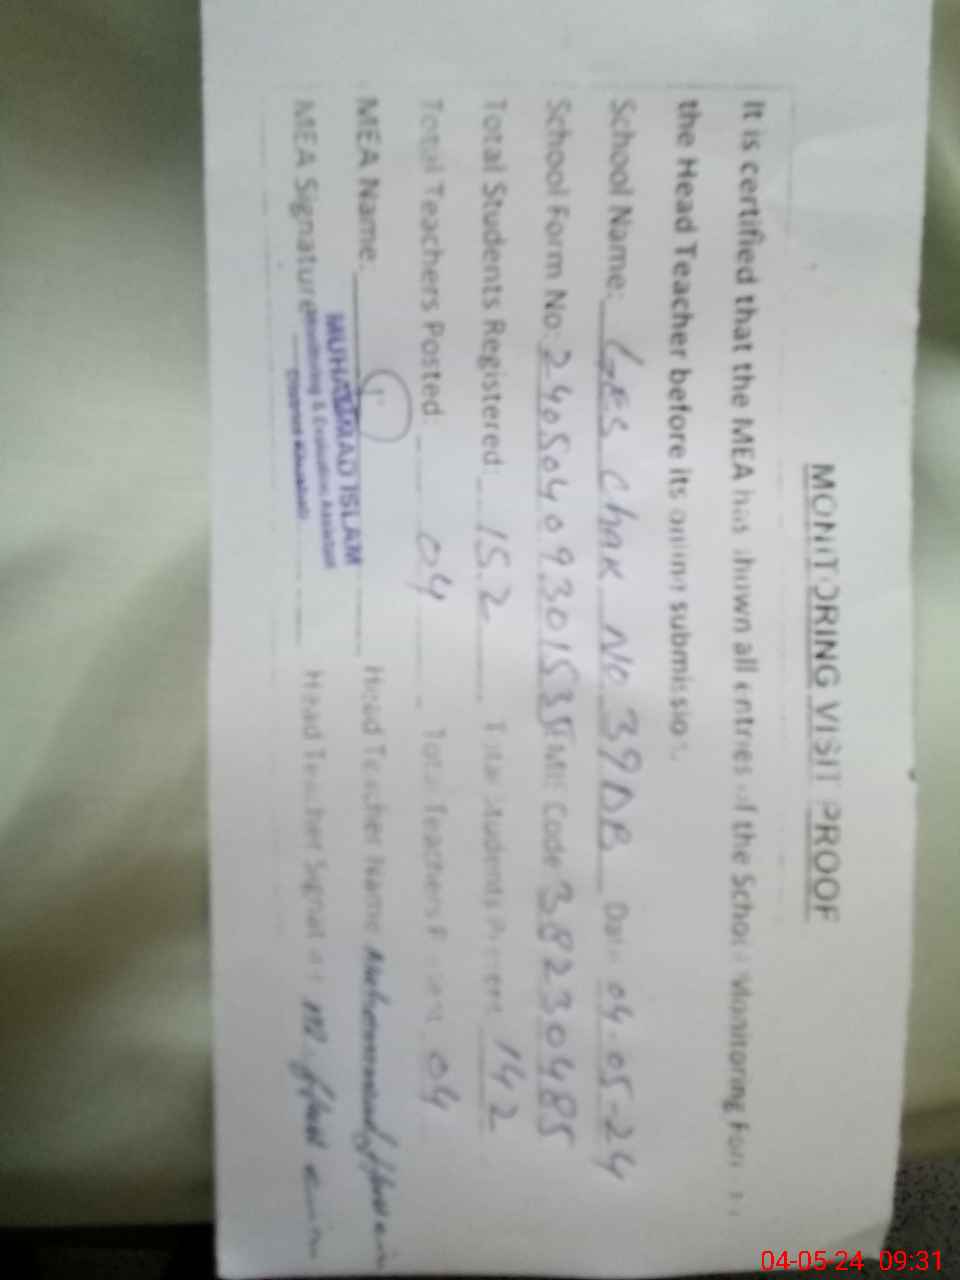 MONITORING VISIT PROOF
It is certified that the MEA has shown all entries of the School Monitoring Form to
the Head Teacher before its online submission.
School Name: GES Chak No 39DB Date 04.05-24
School Form No: 2405040930153 EMIS Code 38230485
Total Students Registered: 152 Total Students Present 142
Total Teachers Posted: 04 Total Teachers Present 04
MEA Name: Head Teacher Name Muhammad
MUHAMMAD ISLAM
MEA Signature Head Teacher Signature
Monitoring & Evaluation Assistant
District
04-05-24 09:31